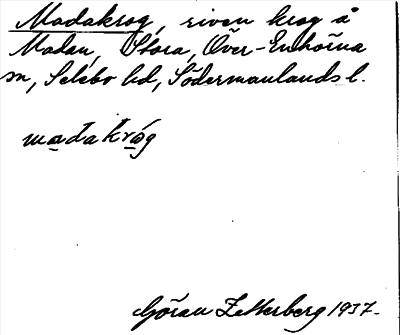 Madakrog, riven krog å
Madan, Stora, Över-Enhörna
sn, Selebo hd, Södermanlands l.
madakróg
Göran Zetterberg 1937.